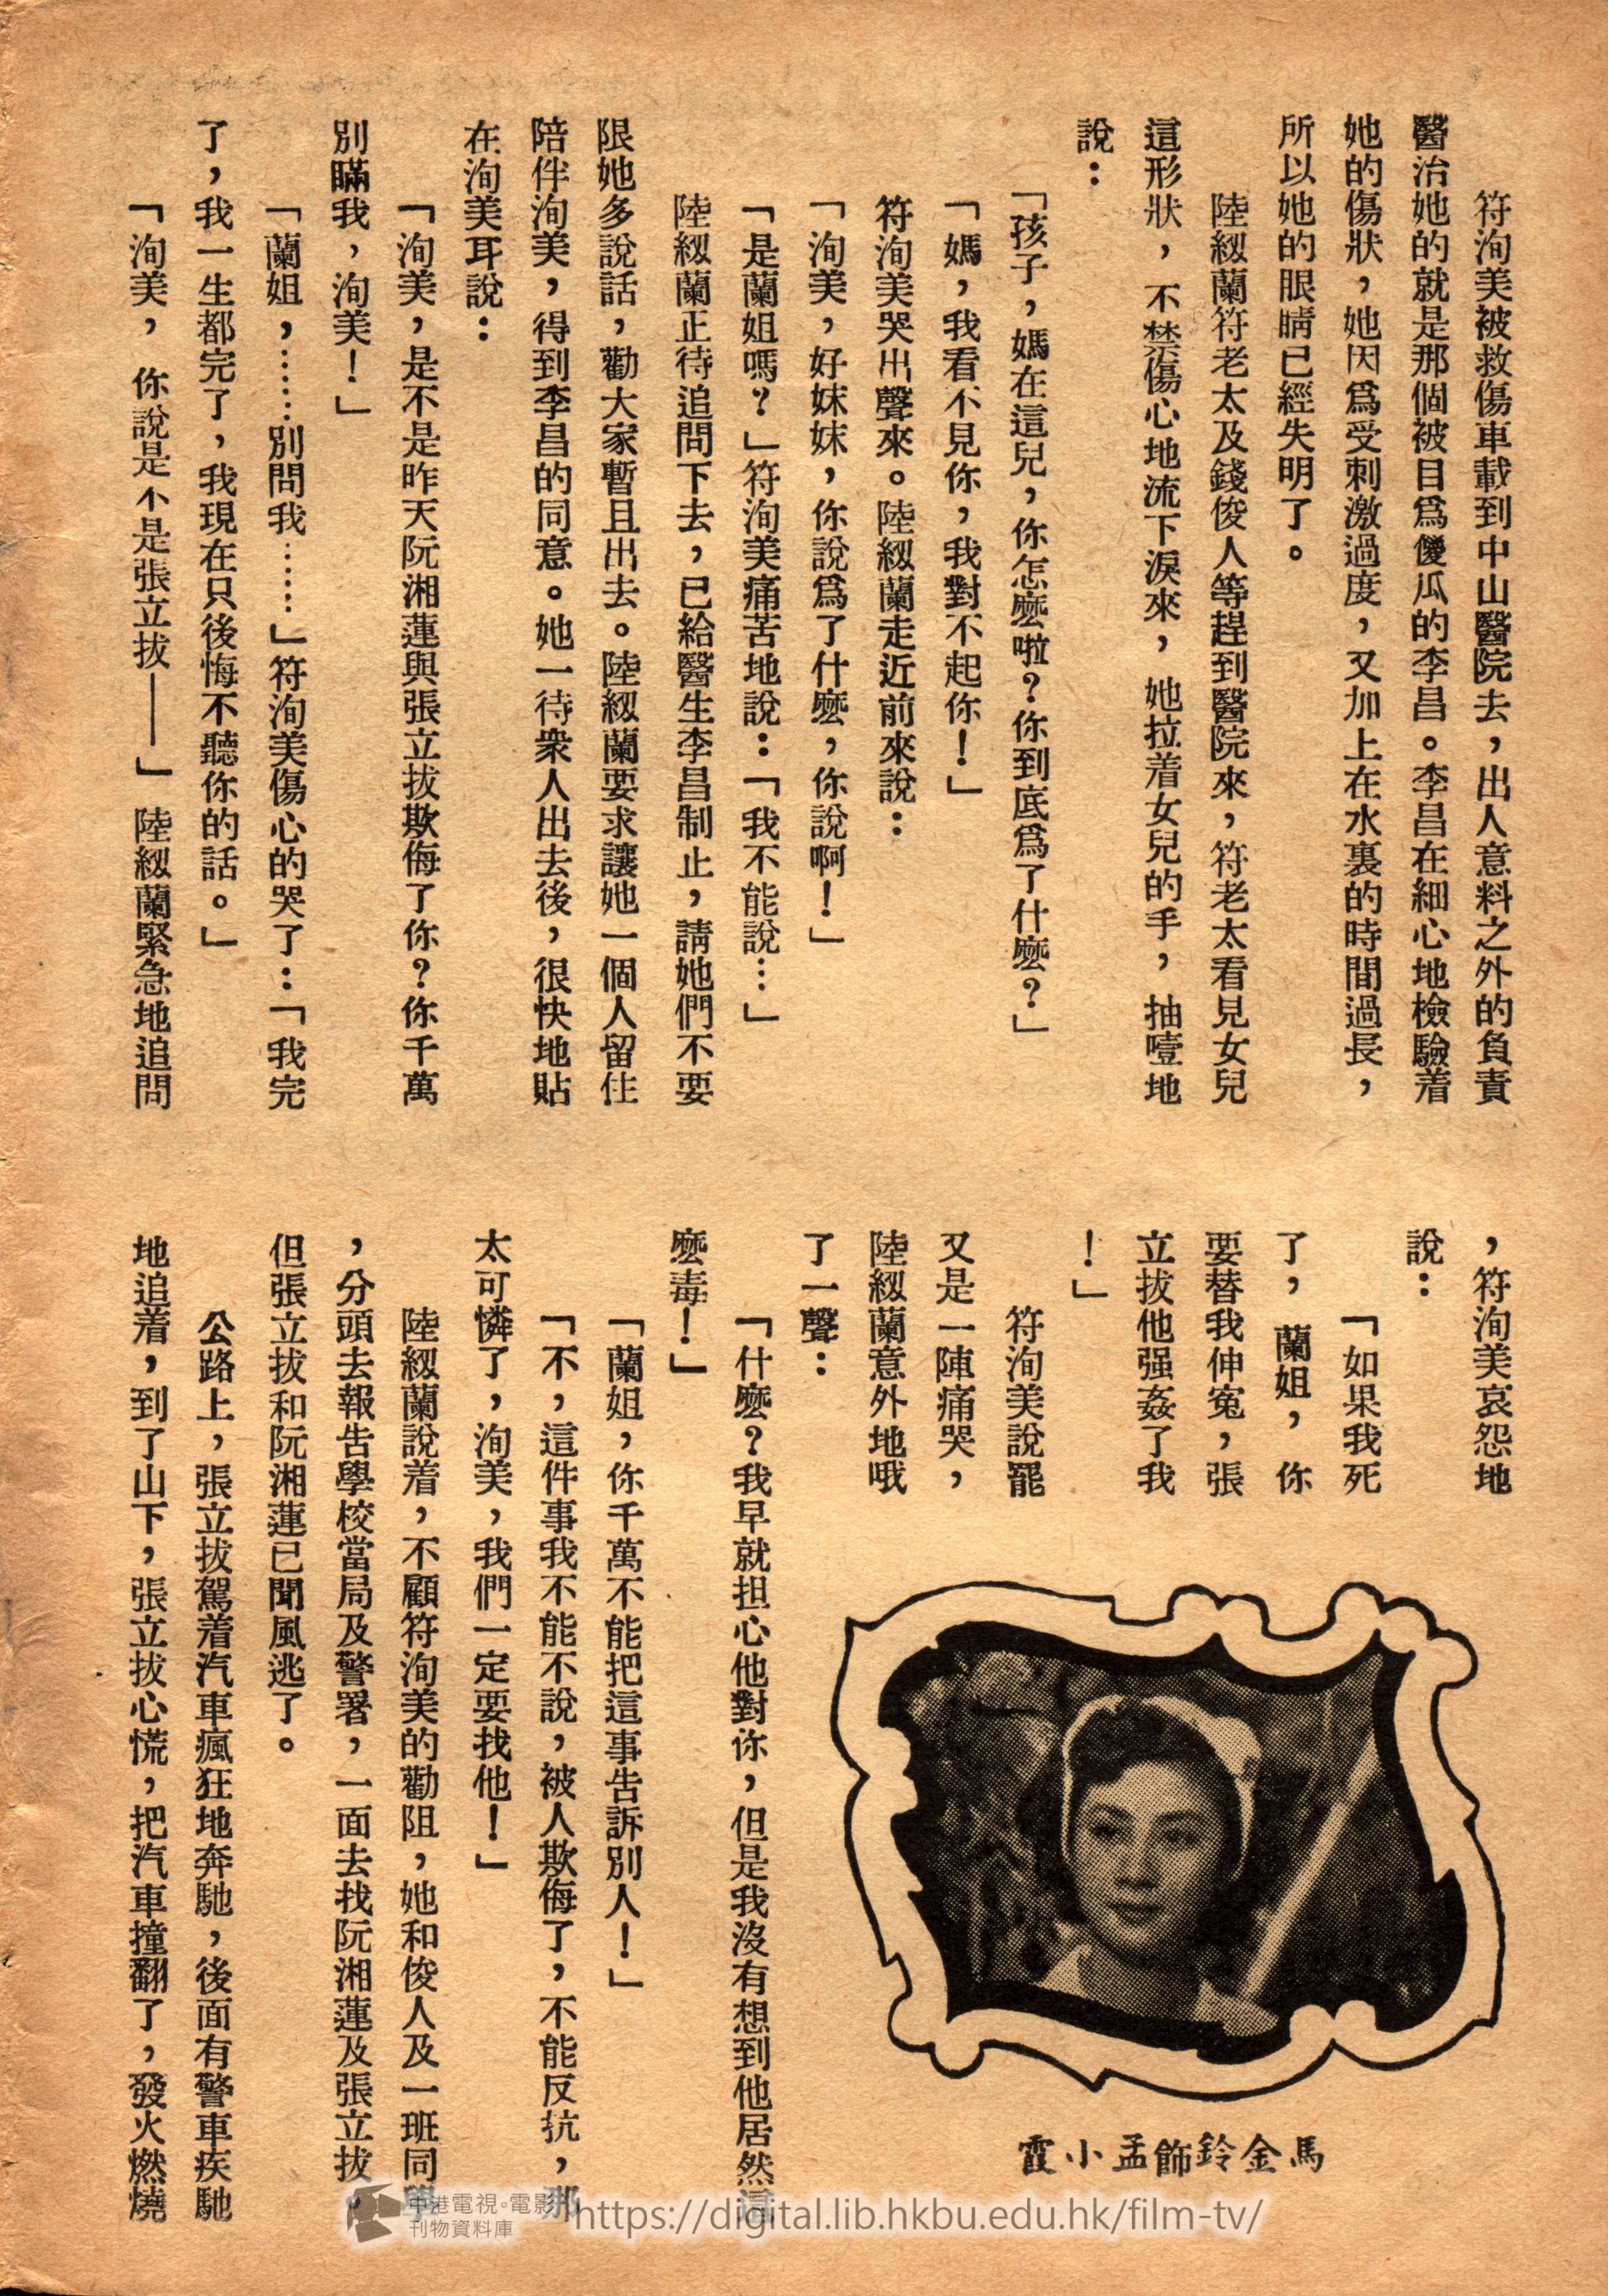 符洵美被救傷車載到中山醫院去，出人意料之外的負責
醫治她的就是那個被目爲儍瓜的李昌。李昌在細心地檢驗着
她的傷狀，她因爲受刺激過度，又加上在水裏的時間過長，
所以她的眼睛已經失明了。
陸綴蘭符老太及錢俊人等趕到醫院來，符老太看見女兒
這形狀，不禁傷心地流下淚來，她拉着女兒的手，抽噎地
說：
「孩子，媽在這兒，你怎麼啦？你到底爲了什麼？」
「媽，我看不見你，我對不起你！」
符洵美哭出聲來。陸綴蘭走近前來說：
「洵美，好妹妹，你說爲了什麼，你說啊！」
「是蘭姐嗎？」符洵美痛苦地說：「我不能說…」
陸綴蘭正待追問下去，已給醫生李昌制止，請她們不要
限她多說話，勸大家暫且出去。陸綴蘭要求讓她一個人留住
陪伴洵美，得到李昌的同意。她一待衆人出去後，很快地貼
在洵美耳說：
「洵美，是不是昨天阮湘蓮與張立拔欺侮了你？你千萬
別瞞我，洵美！」
「蘭姐，……別問我……」符洵美傷心的哭了：「我完
了，我一生都完了，我現在只後悔不聽你的話。」
「洵美，你說是不是張立拔——」陸綴蘭緊急地追問
，符洵美哀怨地
說：
「如果我死
了，蘭姐，你
要替我伸寃，張
立拔他强姦了我
！」
符洵美說罷
又是一陣痛哭，
陸綴蘭意外地哦
了一聲：
「什麼？我早就担心他對你，但是我沒有想到他居然這
麼毒！」
「蘭姐，你千萬不能把這事告訴別人！」
「不，這件事我不能不說，被人欺侮了，不能反抗，那
太可憐了，洵美，我們一定要找他！」
陸綴蘭說着，不顧符洵美的勸阻，她和俊人及一班同學
，分頭去報告學校當局及警署，一面去找阮湘蓮及張立拔，
但張立拔和阮湘蓮已聞風逃了。
公路上，張立拔駕着汽車瘋狂地奔馳，後面有警車疾馳
地追着，到了山下，張立拔心慌，把汽車撞翻了，發火燃燒
霞小孟飾鈴金馬
中港電視。電影
刊物資料庫
https://digital.lib.hkbu.edu.hk/film-tv/